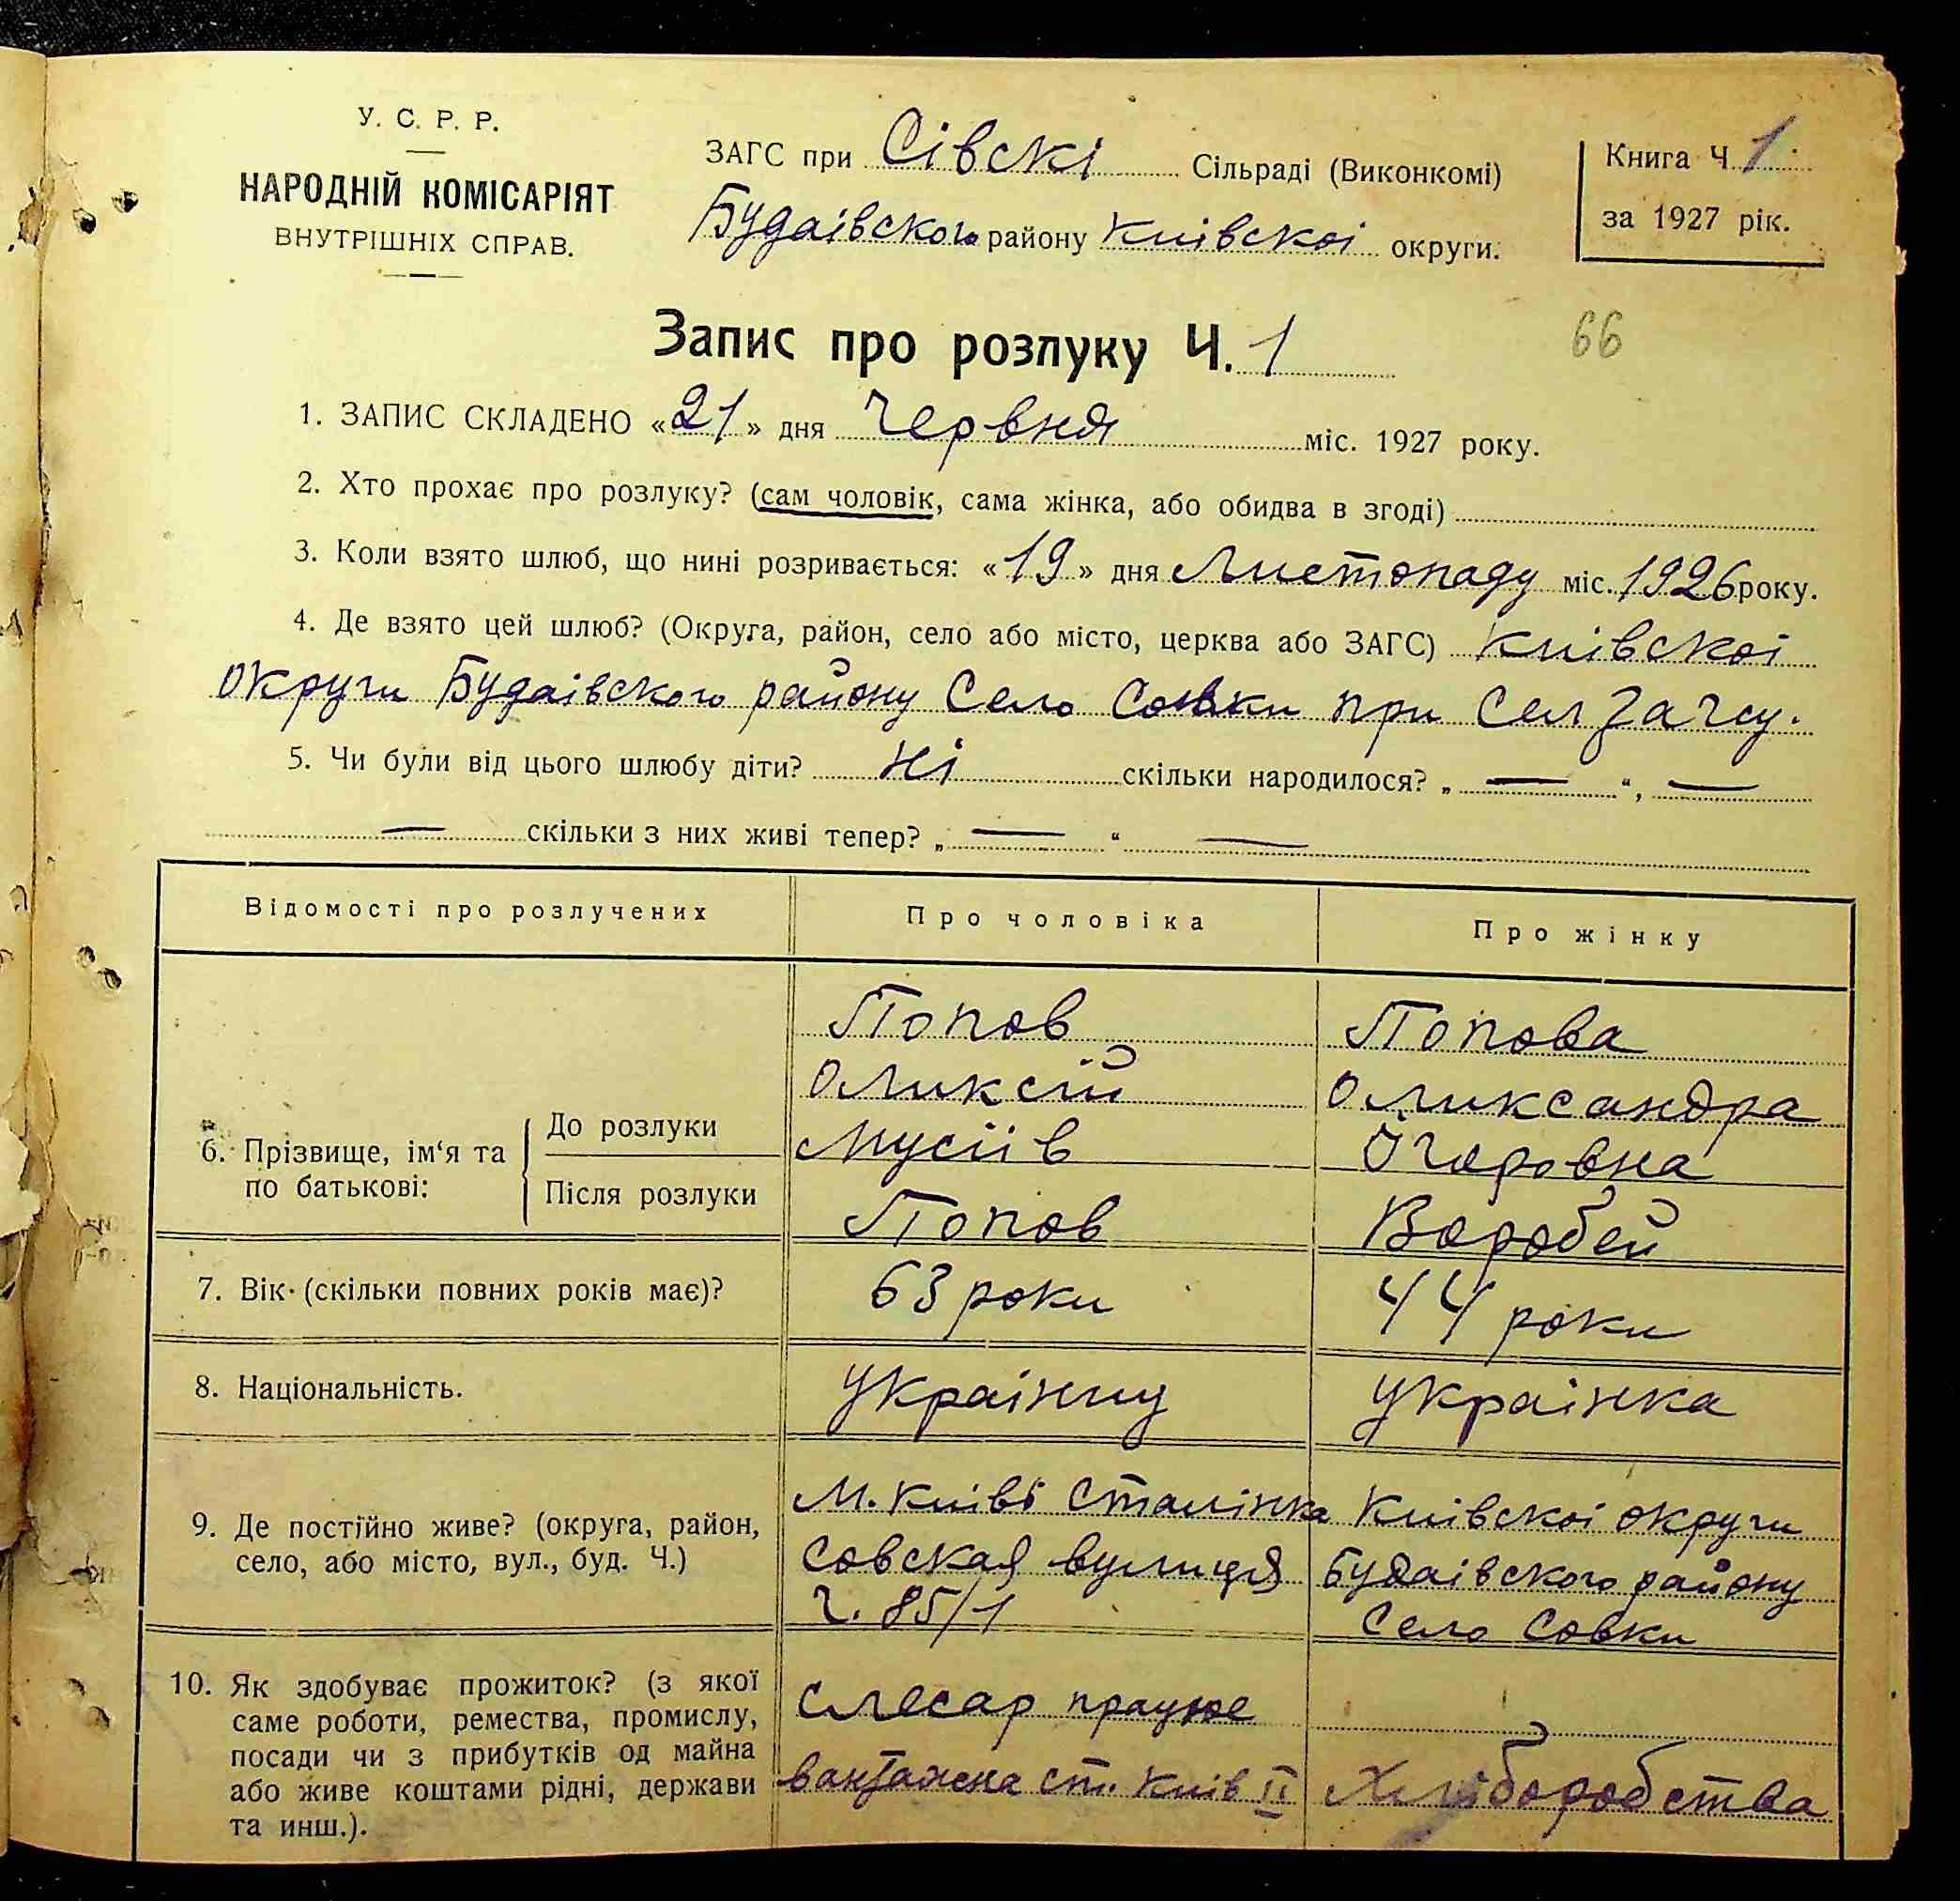 У. С. Р. Р.
НАРОДНІЙ КОМІСАРІЯТ
ВНУТРІШНІХ СПРАВ.
ЗАГС при Сівскі Сільраді (Виконкомі)
Будаівского району Киівскоі округи.
Книга Ч. 1
за 1927 рік.
Запис про розлуку Ч. 1
66
1. ЗАПИС СКЛАДЕНО «21» дня Червня міс. 1927 року.
2. Хто прохає про розлуку? (сам чоловік, сама жінка, або обидва в згоді)
3. Коли взято шлюб, що нині розривається: «19» дня Листопаду міс. 1926 року.
4. Де взято цей шлюб? (Округа, район, село або місто, церква або ЗАГС) Киівскоі
округи Будаівского району Село Совки при Сел Загсу.
5. Чи були від цього шлюбу діти? ні скільки народилося? „ — “, —
— скільки з них живі тепер? „ — “ —
Відомості про розлучених
Про чоловіка
Про жінку
6. Прізвище, ім‘я та
по батькові:
До розлуки
Після розлуки
Попов
Оликсій
Мусіів
Попов
Попова
Оликсандра
Воробей
7. Вік (скільки повних років має)?
63 роки
44 роки
8. Національність.
Украінцу
Украінка
9. Де постійно живе? (округа, район,
село, або місто, вул., буд. Ч.)
М. Киіві Сталінка
Совская вулиця
Ч. 85/1
Киівскоі округи
Будаівского району
Село Совки
10. Як здобуває прожиток? (з якої
саме роботи, ремества, промислу,
посади чи з прибутків од майна
або живе коштами рідні, держави
та инш.).
Слесар працює
вантажена ст. Киів II
Хліборобства